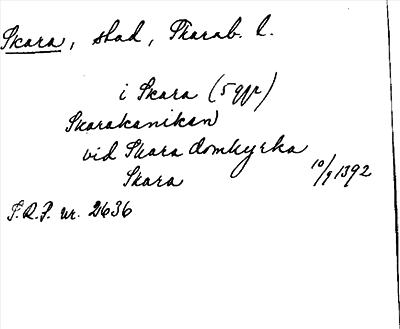 Skara, stad, Skarab. l.
i Skara (5 ggr)
Skarakaniken
vid Skara domkyrka
Skara 10/9 1392
S.R.P. nr. 2636